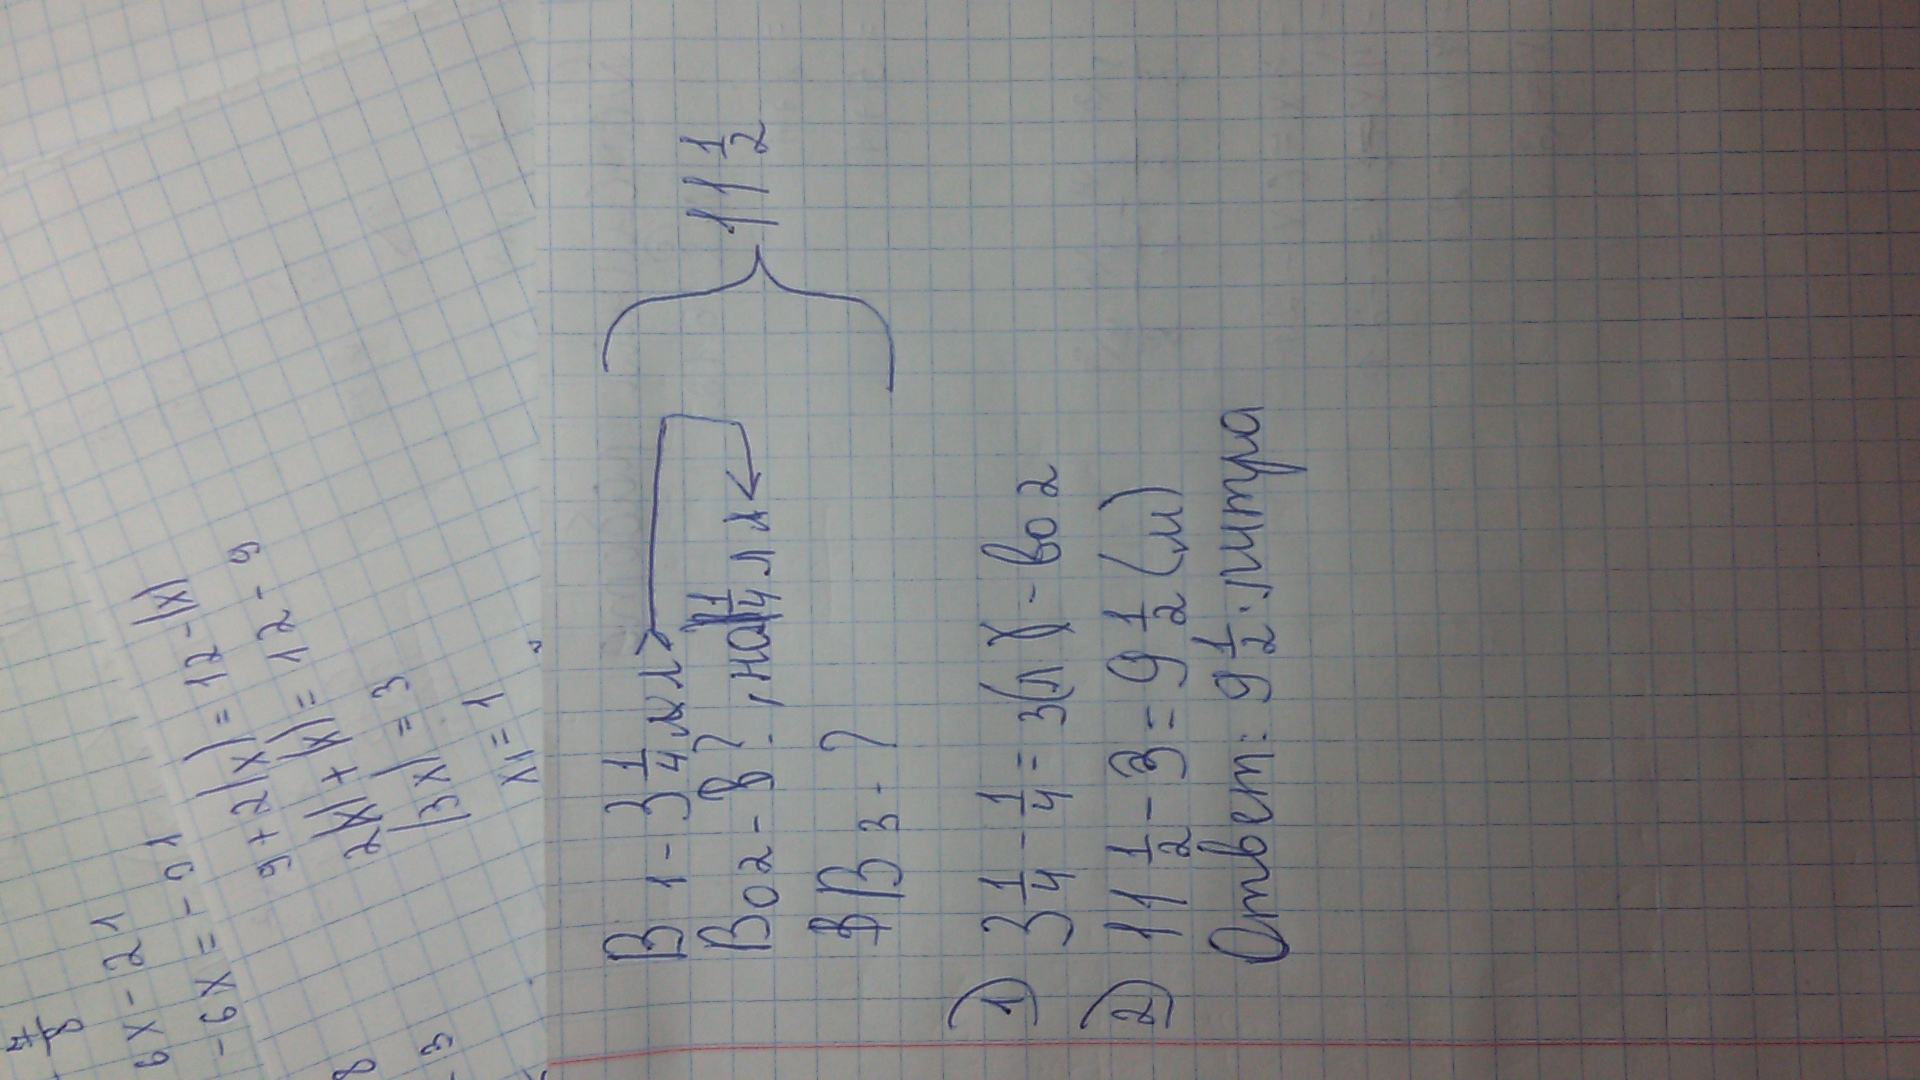 7/8
6x - 21
- 6x = - 21
9 + 2|x| = 12 - |x|
2|x| + |x| = 12 - 9
|3x| = 3
x = 1
8
- 3
В 1 - 3 1/4 л
Во 2 - ?, на 1/4 л <
В 3 - ?
11 1/2
1) 3 1/4 - 1/4 = 3 (л) - во 2
2) 11 1/2 - 3 = 9 1/2 (л)
Ответ: 9 1/2 литра